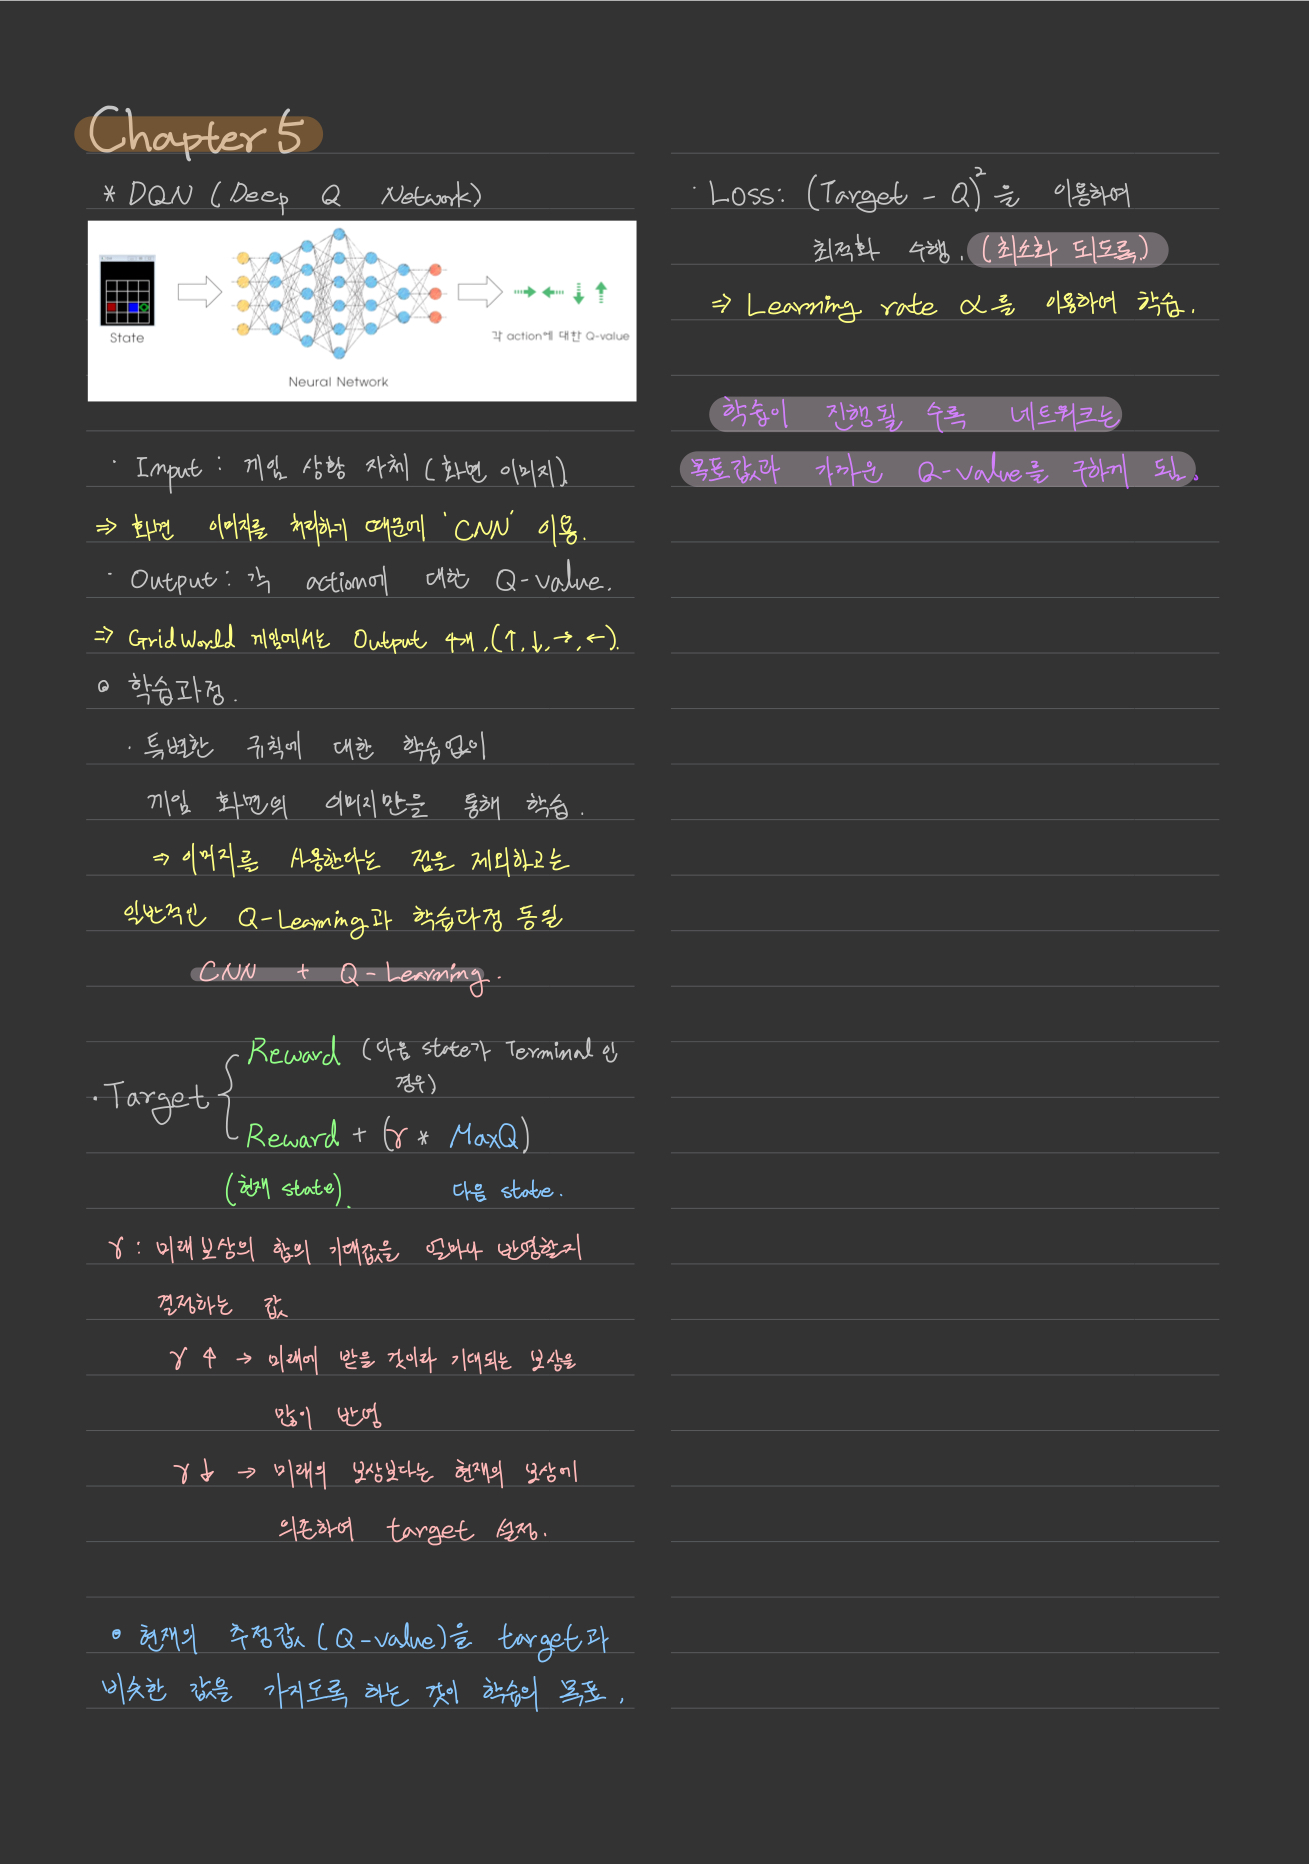 Chapter 5
* DQN (Deep Q Network)
State
Neural Network
각 action에 대한 Q-value
· Input : 게임 상황 자체 (화면 이미지)
⇒ 화면 이미지를 처리하기 때문에 'CNN' 이용.
· Output : 각 action에 대한 Q-value.
⇒ GridWorld 게임에서는 Output 4개.(↑,↓,→,←).
⊙ 학습과정.
· 특별한 규칙에 대한 학습없이
게임 화면의 이미지만을 통해 학습.
⇒ 이미지를 사용한다는 점을 제외하고는
일반적인 Q-Learning과 학습과정 동일
CNN + Q-Learning.
· Target
Reward (다음 state가 Terminal 인
경우)
Reward + (γ * MaxQ)
(현재 state). 다음 state.
γ : 미래보상의 합의 기대값을 얼마나 반영할지
결정하는 값
γ ↑ → 미래에 받을 것이라 기대되는 보상을
많이 반영
γ ↓ → 미래의 보상보다는 현재의 보상에
의존하여 target 설정.
⊙ 현재의 추정값 (Q-value)을 target과
비슷한 값을 가지도록 하는 것이 학습의 목표.
· Loss: (Target - Q)²을 이용하여
최적화 수행. (최소화 되도록)
⇒ Learning rate α를 이용하여 학습.
학습이 진행될 수록 네트워크는
목표값과 가까운 Q-value를 구하게 됨.